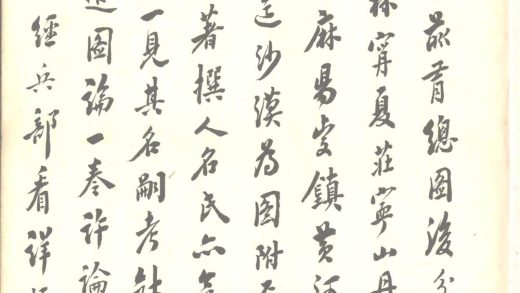 總圖後分
林寧夏莊寧山丹
麻易鎮黃河
沙漠為圖附
著撰人名氏亦
一見其名嗣考
邊圖論一奏許論
經兵部看詳